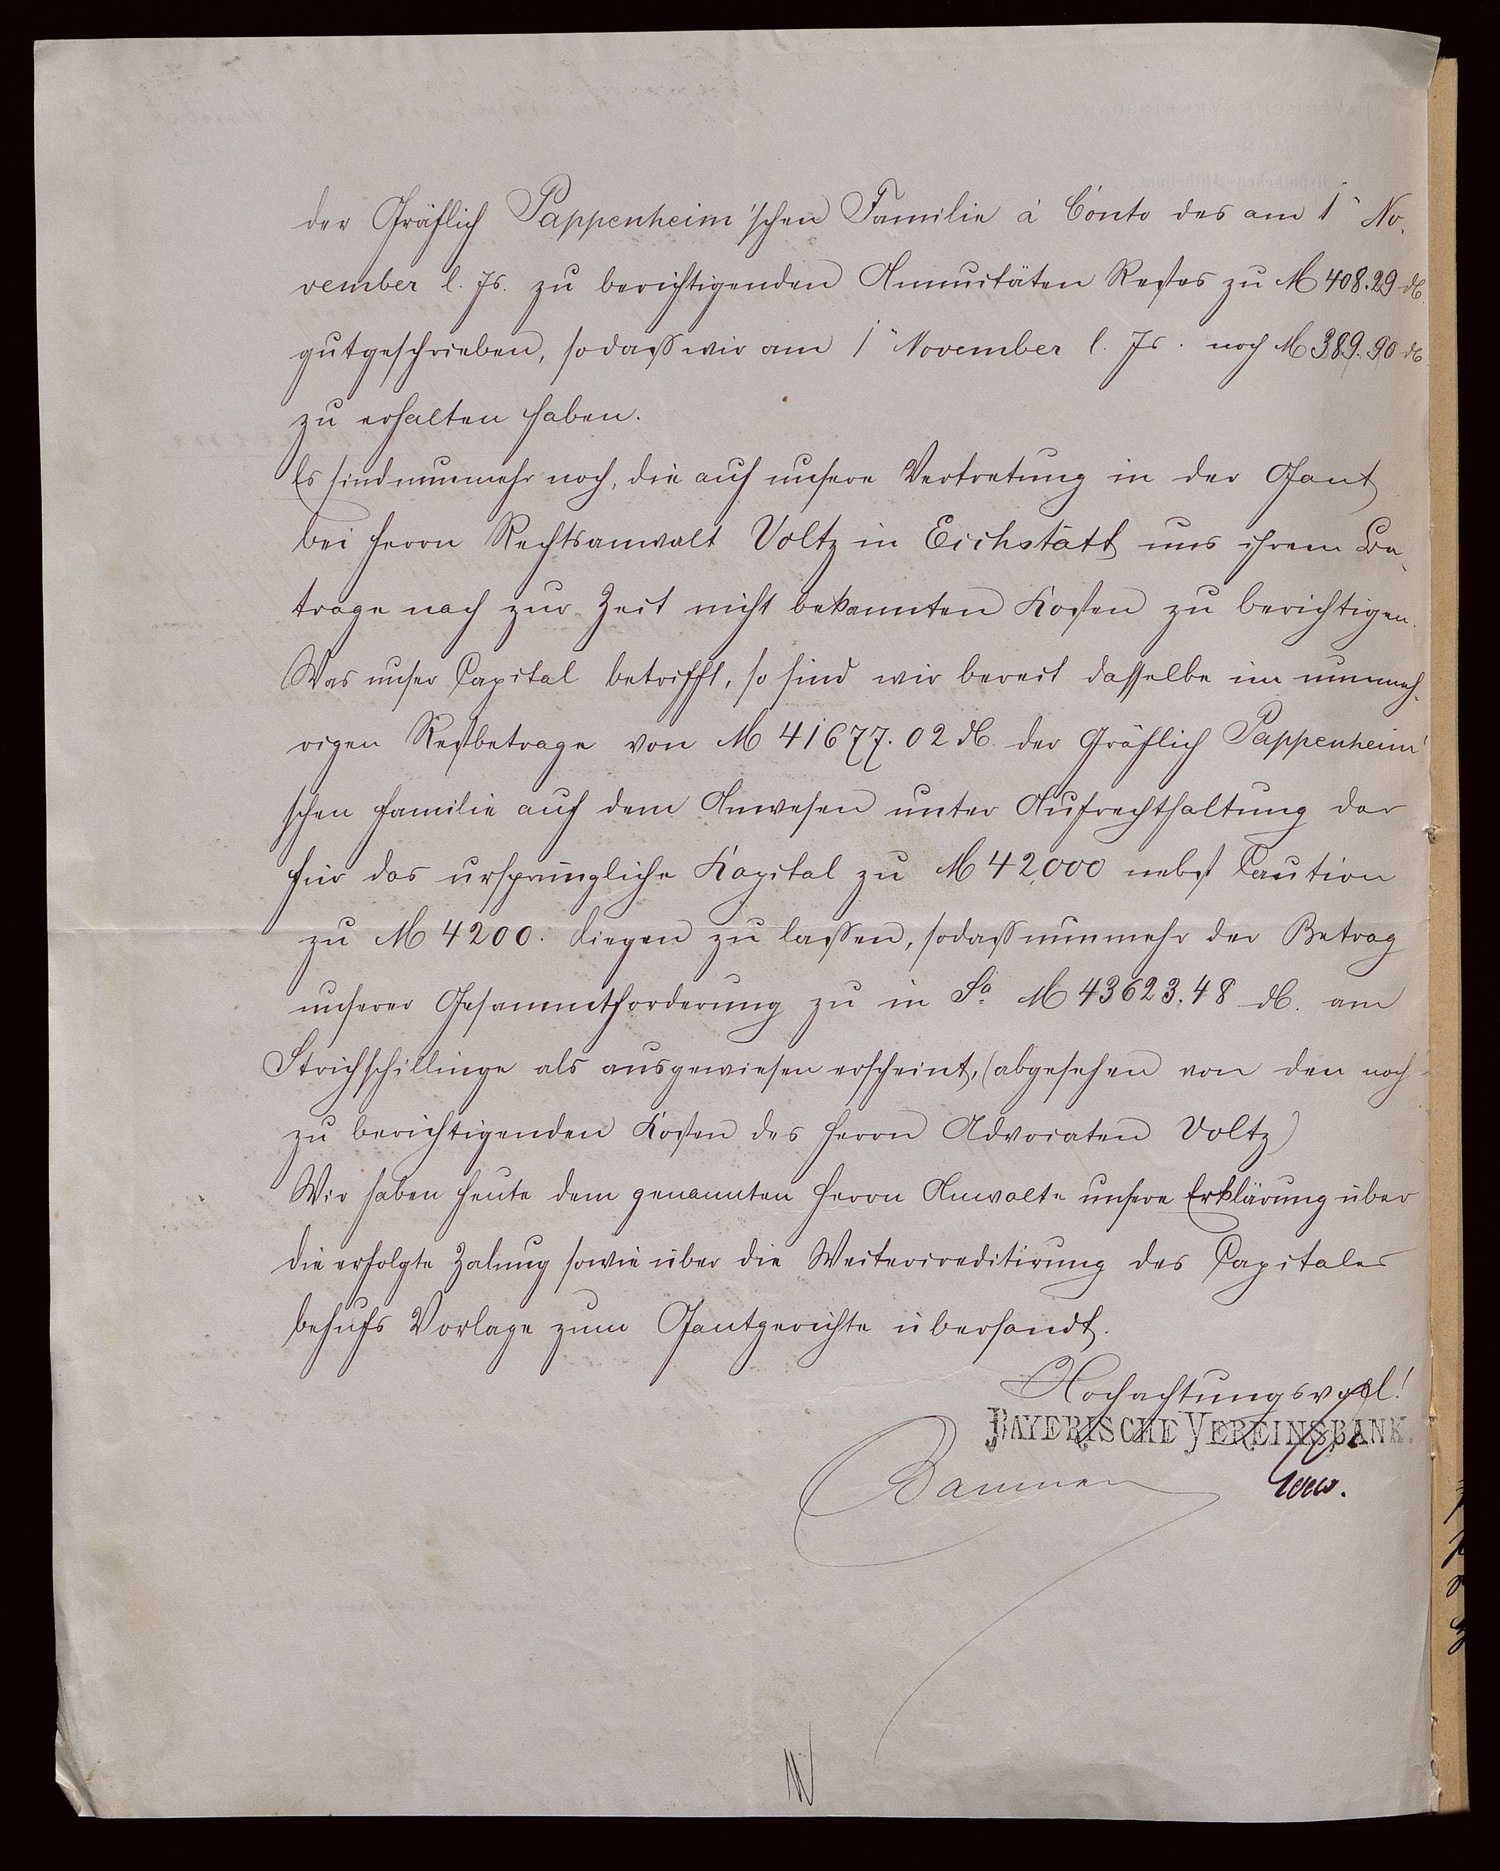 der Gräflich Pappenheim'schen Familie à Conto des am 1. No-
vember l. Js. zu berichtigenden Annuitäten Restes zu M 408.29 ₰.
gutgeschrieben, sodass wir am 1. November l. Js. noch M 389.90 ₰
zu erhalten haben.
Es sind nunmehr noch, die auf unsere Vertretung in der Gant
bei Herrn Rechtsanwalt Voltz in Eichstätt uns ihrem Be-
trage nach zur Zeit nicht bekannten Kosten zu berichtigen.
Was unser Capital betrifft, so sind wir bereit dasselbe im nunmeh-
rigen Restbetrage von M 41677.02 ₰. der Gräflich Pappenheim'
schen Familie auf dem Anwesen unter Aufrechthaltung der
für das ursprüngliche Kapital zu M 42,000 nebst Caution
zu M 4200. liegen zu lassen, sodass nunmehr der Betrag
unserer Gesammtforderung zu in Sa. M 43623.48 ₰. am
Strichschillinge als ausgewiesen erscheint, (abgesehen von den noch
zu berichtigenden Kosten des Herrn Advocaten Voltz)
Wir haben heute dem genannten Herrn Anwalte unsere Erklärung über
die erfolgte Zalung sowie über die Weitercreditirung des Capitales
behufs Vorlage zum Gantgerichte übersandt.
Hochachtungsvoll!
BAYERISCHE VEREINSBANK.